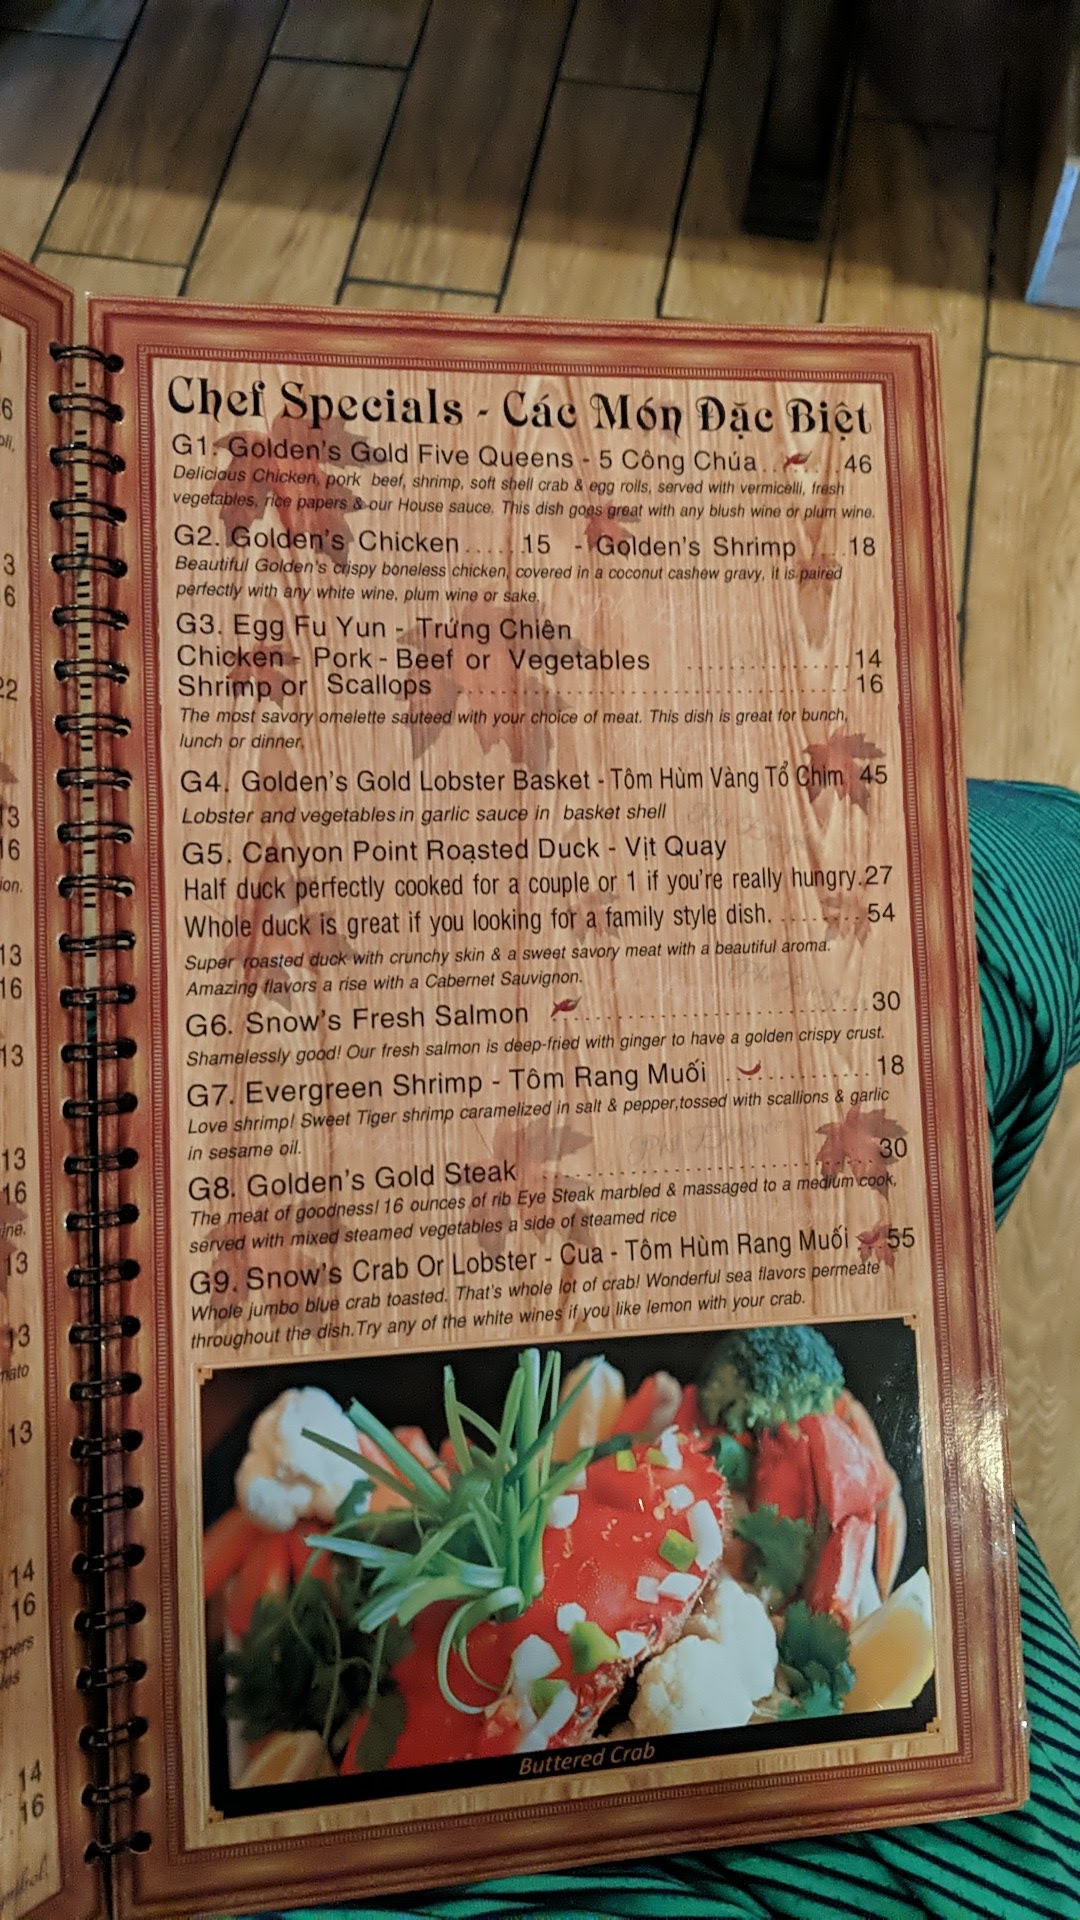 Chef Specials - Các Món Đặc Biệt
G1. Golden's Gold Five Queens - 5 Công Chúa.. ....46
Delicious Chicken, pork beef, shrimp, soft shell crab & egg rolls, served with vermicelli, fresh
vegetables, rice papers & our House sauce. This dish goes great with any blush wine or plum wine.
G2. Golden's Chicken......15 - Golden's Shrimp ....18
Beautiful Golden's crispy boneless chicken, covered in a coconut cashew gravy, it is paired
perfectly with any white wine, plum wine or sake.
G3. Egg Fu Yun - Trứng Chiên
Chicken - Pork - Beef or Vegetables ................14
Shrimp or Scallops ........................................16
The most savory omelette sauteed with your choice of meat. This dish is great for bunch,
lunch or dinner.
G4. Golden's Gold Lobster Basket - Tôm Hùm Vàng Tổ Chim 45
Lobster and vegetables in garlic sauce in basket shell
G5. Canyon Point Roasted Duck - Vịt Quay
Half duck perfectly cooked for a couple or 1 if you're really hungry.27
Whole duck is great if you looking for a family style dish. .........54
Super roasted duck with crunchy skin & a sweet savory meat with a beautiful aroma.
Amazing flavors a rise with a Cabernet Sauvignon.
G6. Snow's Fresh Salmon ..............................30
Shamelessly good! Our fresh salmon is deep-fried with ginger to have a golden crispy crust.
G7. Evergreen Shrimp - Tôm Rang Muối ...............18
Love shrimp! Sweet Tiger shrimp caramelized in salt & pepper,tossed with scallions & garlic
in sesame oil.
G8. Golden's Gold Steak ................................30
The meat of goodness! 16 ounces of rib Eye Steak marbled & massaged to a medium cook,
served with mixed steamed vegetables a side of steamed rice
G9. Snow's Crab Or Lobster - Cua - Tôm Hùm Rang Muối ..55
Whole jumbo blue crab toasted. That's whole lot of crab! Wonderful sea flavors permeate
throughout the dish.Try any of the white wines if you like lemon with your crab.
Buttered Crab
6
3
6
22
13
16
13
16
13
13
16
13
13
13
14
16
14
16